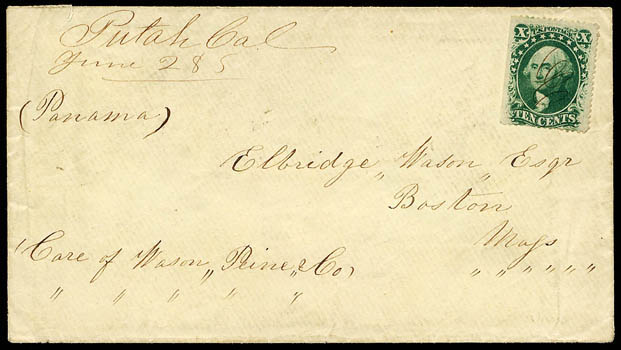 Putah Cal
June 28 5
X U.S. POSTAGE X
TEN CENTS
(Panama)
Elbridge, Wason, Esqr
Boston
Mass
(Care of Wason, Peirce, & Co)
" " " " " "
" " " " "